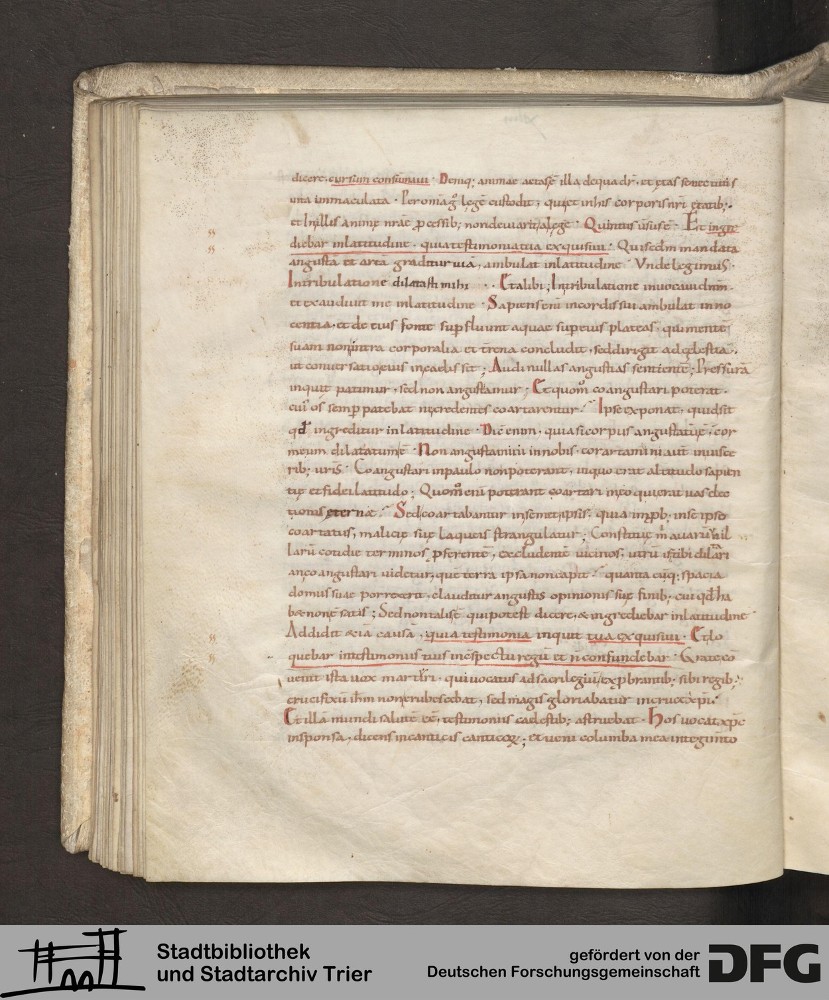 dicere, cursum consumaui · Deniq; animae aetas ē illa de qua dr̄, et ętas senectutis
uita immaculata ·
et in illis animę nrāe · Quintus uersus ē · Et ingre
diebar in latitudine · quia testimonia tua exquisiui · Qui sedm̄ mandata
angustā et artā graditur uiā, ambulat in latitudine · Vnde legimus ·
In tribulatione dilatasti mihi · Et alibi; In tribulatione inuocaui dnm̄ ·
et exaudiuit me in latitudine · Sapiens enī in cordis sui ambulat inno
centia · et de eius fonte sup̄fluunt aquae sup eius plateas · qui mentē
suam non intra corporalia et trēna concludit, sed dirigit ad cęlestia ·
ut conuersatio eius in caelis sit; Audi nullas angustias sentientē; Pressurā
inquit patimur, sed non angustamur; Et quom̄ coangustari poterat ·
cui os semp̄ patebat ne credentes coartarentur · Ipse exponat, quid sit
qđ ingreditur in latitudine · Dic̄ enim, quia si corpus angustatur, cor
meum dilatatum ē · Non angustamini in nobis, coartamini aut̄ in uisce
rib; uris̄ · Coangustari in paulo non poterant, in quo erat altitudo sapien
tię et fidei latitudo; Quom̄ enī poterant coartari in eo qui erat uas elec
tionis ęternae · Sed coartabantur in semetipsis, quia
coartatus, malicię suę laqueis strangulatur; Constitue m̄ auarū
larū cotidie terminos p̄ferentē, excludentē uicinos, utrū is tibi dilatari
an coangustari uidetur, quē terra ipsa non capit · quanta cūq; spacia
domus suae porrexerit, clauditur angustiis opinionis suę finib; cui qđ ha
bet non ē satis; Sed non talis ē qui potest dicere, & ingrediebar in latitudine ·
Addidit & iā causā · quia testimonia inquit tua exquisiui · Et lo
quebar in testimoniis tuis in c̄spectu regū et n̄ confundebar ·
uenit ista uox martyri · qui uocatus ad sacrilegiū
crucifixū ihm̄ non erubescebat, sed magis gloriabatur in cruce xp̄i ·
Et illa mundi salutē eē, testimoniis caelestib; astruebat · Hos uocat xp̄c
in sponsa, dicens in canticis canticoꝝ; et ueni columba mea in tegimto
Stadtbibliothek
und Stadtarchiv Trier
gefördert von der
Deutschen Forschungsgemeinschaft
DFG